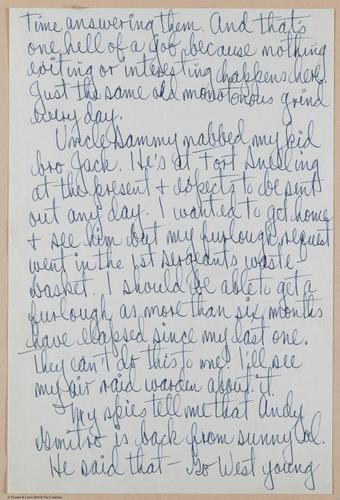 time answering them. And that's
one hell of a job because nothing
exiting or interesting happens here.
Just the same old monotonous grind
every day.
Uncle Sammy nabbed my kid
bro Jack. He's at Fort Snelling
at the present & expects to be sent
out any day. I wanted to get home
& see him but my furlough request
went in the 1st sergeants waste
basket. I should be able to get a
furlough as more than six months
have elapsed since my last one.
They can't do this to me. I'll see
my air raid warden about it.
My spies tell me that Andy
is back from sunny Cal.
He said that — Go West young